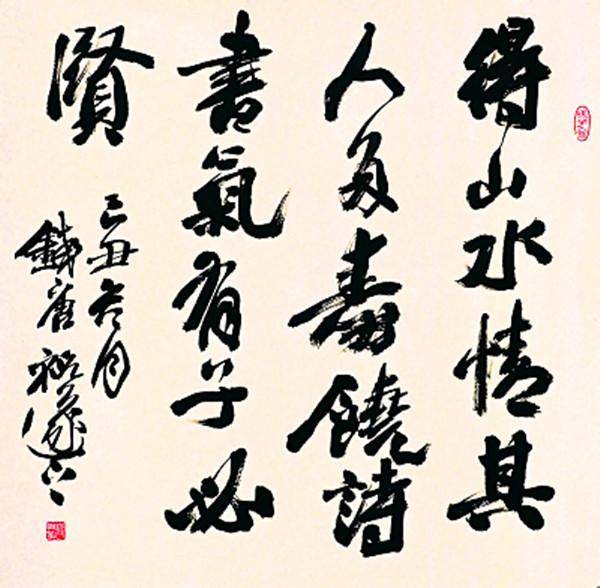 得山水情其
人多壽饒詩
書氣有子必
賢
己丑冬月